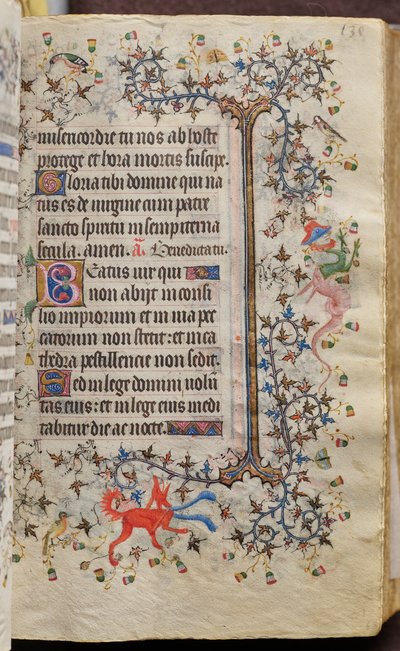 138
misericordie tu nos ab hoste
protege et hora mortis suscipe.
Gloria tibi domine qui na
tus es de uirgine cum patre
sancto spiritu in sempiterna
secula. amen. a. Benedicta tu.
BEatus uir qui
non abijt in consi
lio impiorum et in uia pec
catorum non stetit: et in ca
thedra pestillencie non sedit.
Sed in lege domini uolun
tas eius: et in lege eius medi
tabitur die ac nocte.